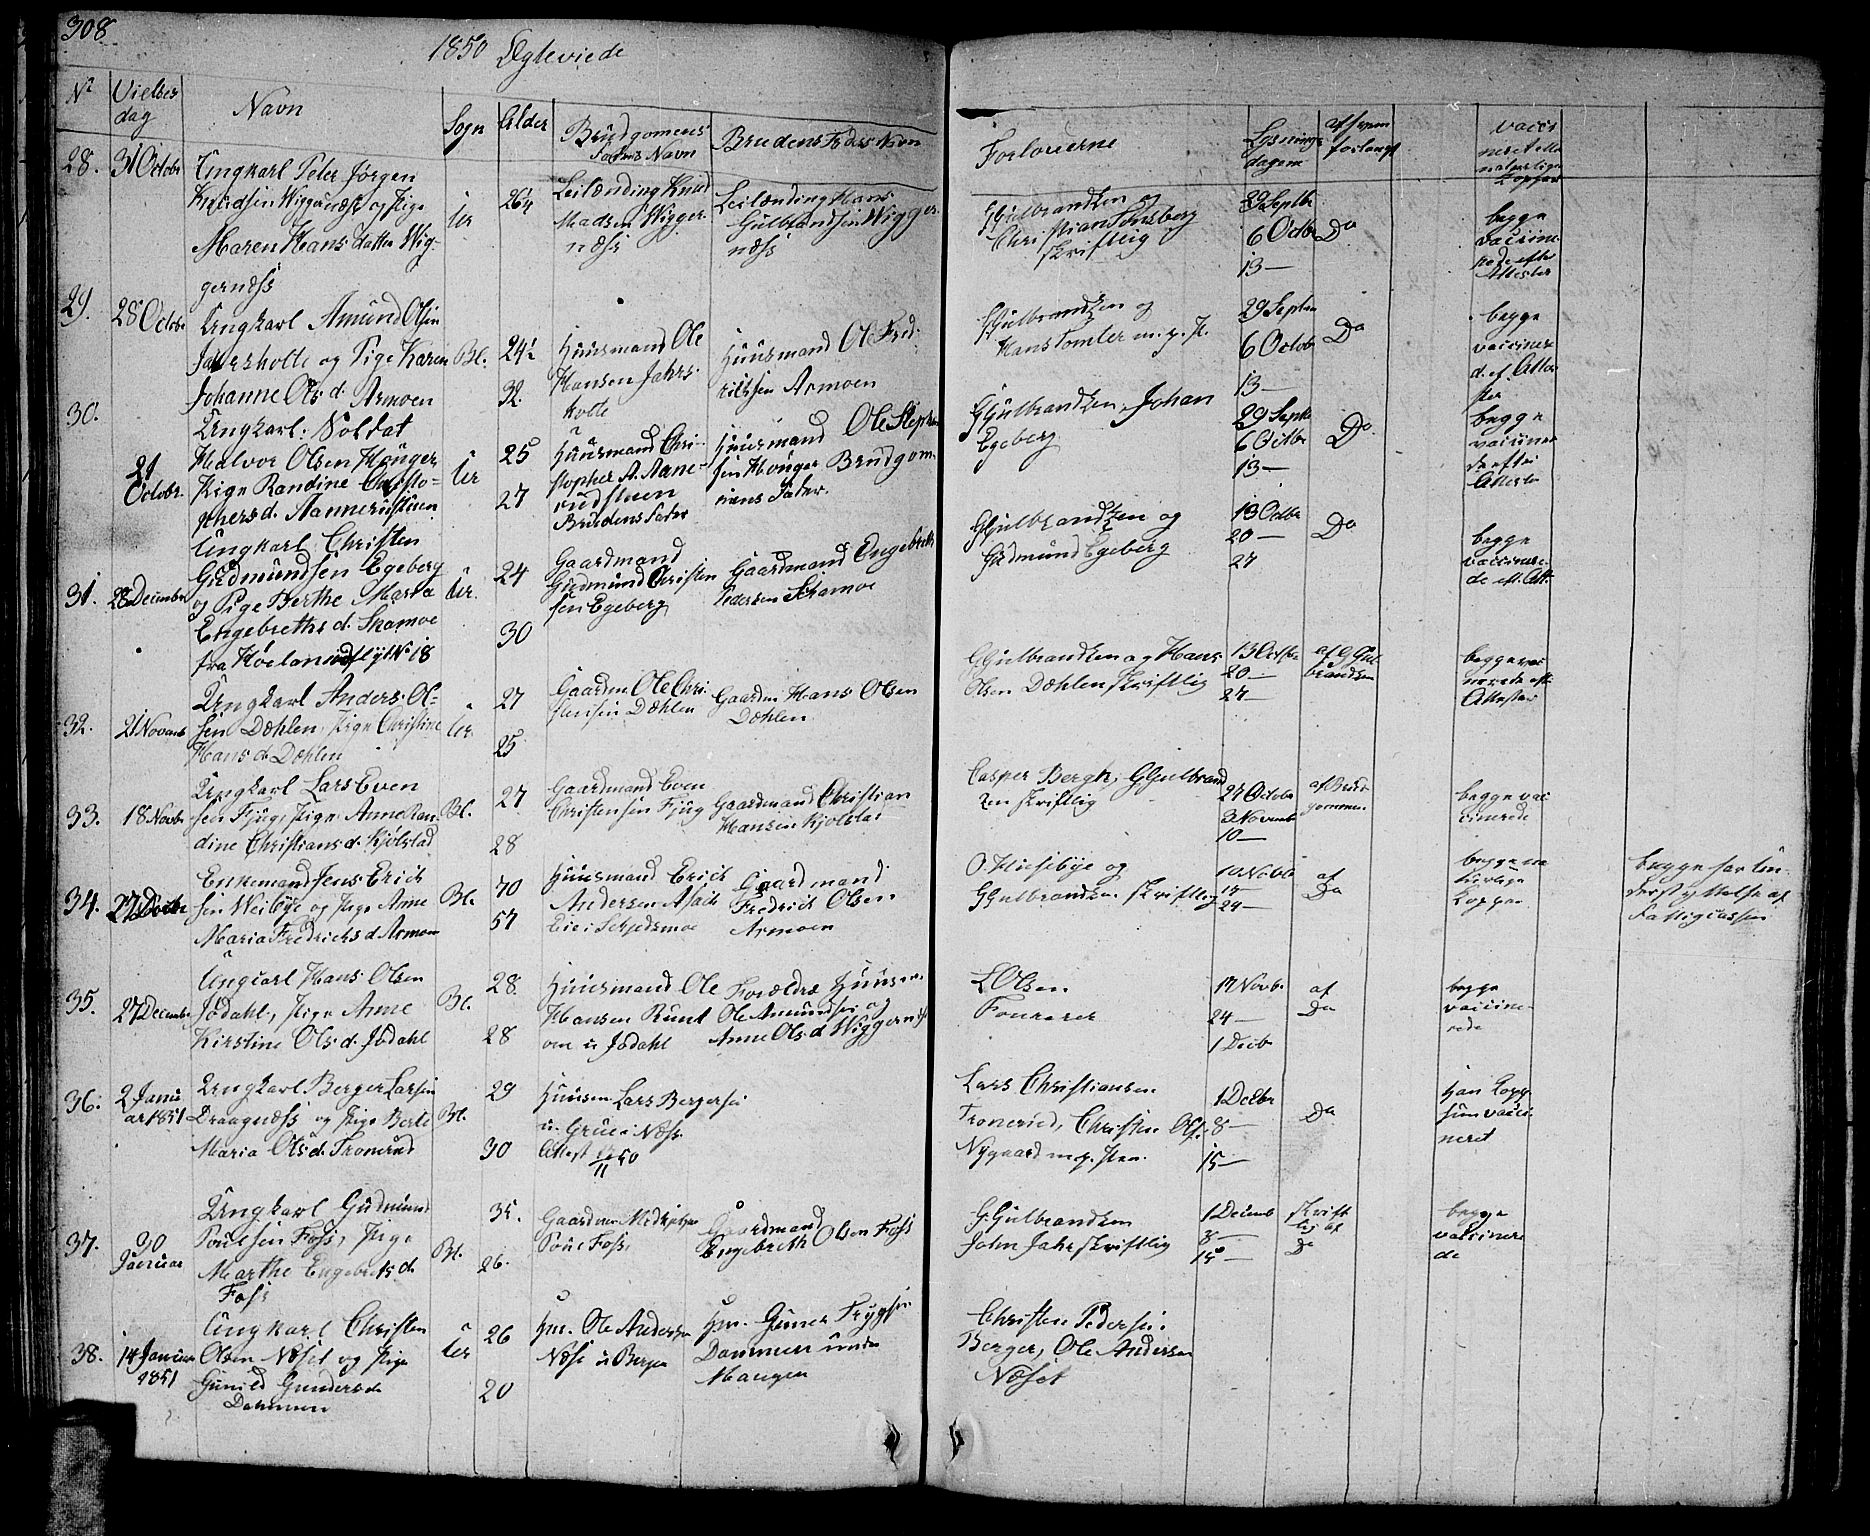 308
1850 Ægteviede
No
Vielses
dag
Navn
Sogn
Alder
Brudgomens
Faders Navn
Brudens Faders Navn
Forloverne
Lysnings
dagene
af hvem
forlangt
vacci
neret eller
naturlige
Kopper
28. 31 Octobr Ungkarl Peter Jørgen
Knudsen Wiggernæss og Pige
Maren Hans datter Wig-
gernæss
Ur
Leilænding Knud
Madsen Wigger
næss
Leilænding Hans
Gulbrandsen Wigger
næss
GGulbrandsen og
Christian Tønsberg
skriftlig
29 Septbr
6 Octbr
13 —
Do
begge
vaccine
rede efter
Attester
29. 28 Octobr Ungkarl Amund Olsen
Jahrsholte og Pige Karen
Johanne Ols d. Armoen
Bl.
24½
32
Huusmand Ole
Hansen Jahrs-
holte
Huusmand Ole Fred-
richsen Armoen
GGulbrandsen og
Hans Tomter m. p. P.
29 Septbr
6 Octobr
13 —
Do
begge
vaccinere
de ef. Atte
ster
30. 21
Octobr.
Ungkarl: Soldat
Halvor Olsen Hønger
Pige Randine Christo-
phers d. Aannerudstuen
Ur
25
27
Huusmand Chri-
stopher A. Aane-
rudstuen
Brudens Fader
Huusmand Ole Steph
sen Hønger Brudgom-
mens Fader.
GGulbrandsen, Johan
Egeberg
29 Septbr
6 Octbr
13 —
Do
begge
vaccinere
de efter
Attester
31. 28 Decembr
Ungkarl Christen
Gudmundsen Egeberg
og Pige Berthe Maria
Engebreths d. Skamoe
fra Høland flyt No 18
Ur.
24
30
Gaardmand
Gudmund Christen
sen Egeberg
Gaardmand Engebreth
Pedersen Skamoe
GGulbrandsen og
Gudmund Egeberg
13 Octbr
20 —
27
Do
begge
vaccinere-
de eft. Att.
32. 21 Novemb
Ungkarl Anders Ol-
sen Dæhlen, Pige Christine
Hans d. Dæhlen
Ur.
27
25
Gaardm Ole Chri-
stensen Dæhlen
Gaardm Hans Olsen
Dæhlen
GGulbrandsen og Hans
Olsen Dæhlen skriftlig
13 Octbr
20 —
27 —
af GGul
brandsen
begge vac
cinerede eft.
Attester
33. 18 Novbr
Ungkarl Lars Even
sen Fjug, Pige Anne Ran
dine Christians d. Kjølstad
Bl.
27
28
Gaardmand Even
Christensen Fjug
Gaardmand Christian
Hansen Kjølstad
Casper Bergh, GGulbrand
sen skriftlig
27 Octobr
3 Novemb
10 —
af Brud
gommen
begge vac
cinerede
34. 27 Decbr
Enkemand Jens Erich
sen Weibye og Pige Anne
Maria Fredrichs d Armoen
Bl.
70
57
Huusmand Erich
Andersen Asack
Eie i Schjedsmoe
Gaardmand
Fredrich Olsen
Armoen
O. Husebye og
GGulbrandsen skriftlig
10 Novbr
17 —
24 —
af
Do
begge na
turlige
Kopper
begge har Un
derstyttelse af
Fattigcassen
35. 27 Decemb
Ungkarl Hans Olsen
Jødahl, Pige Anne
Kirstine Ols d. Jødahl
Bl.
28
28
Huusmand Ole
Hansen Rust
om u Jødahl
Forældre Huusm
Ole Amundsen og
Anne Ols d Wiggernæss
L Olsen
Fourerer
17 Novbr
24 —
1 Decbr
af
Do
begge
vaccine-
rede
36. 2 Janu
ar 1851
Ungkarl Berger Larsen
Draagnæss og Pige Berte
Maria Ols d. Tronerud
Bl.
29
30
Huusm Lars Bergersen
u. Grue i Næss
Attest
50
Lars Christiansen
Tronerud, Christen Ols
Nygaard m. p. Pen
1 Decbr
8 —
15 —
Do
Han Kopp
hun vacci
neret
37. 30
Januar
Ungkarl Gudmund
Poulsen Foss, Pige
Marthe Engebreths d.
Foss
Bl.
35.
26.
Gaardm Medhjelper
Poul Foss,
Gaardmand
Engebreth Olsen Foss
G. Gulbrandsen
John Jahr skriftlig
1 Decemb
8 —
15 —
skrift
lig af
Do
begge
vaccinere
de
38. 14 Januar
1851
Ungkarl Christen
Olsen Næset og Pige
Gunild Gunders d.
Dammen
Ur
26
20
Hm. Ole Andersen
Næset u Berger
Hm. Gunder Trygsen
Dammen under
Haugen
Christen Pedersen
Berger, Ole Andersen
Næset